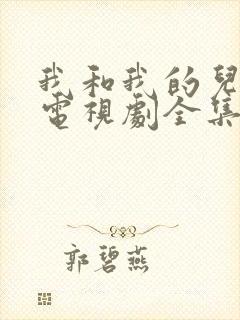 我和我的兒
電視劇全集
郭碧燕